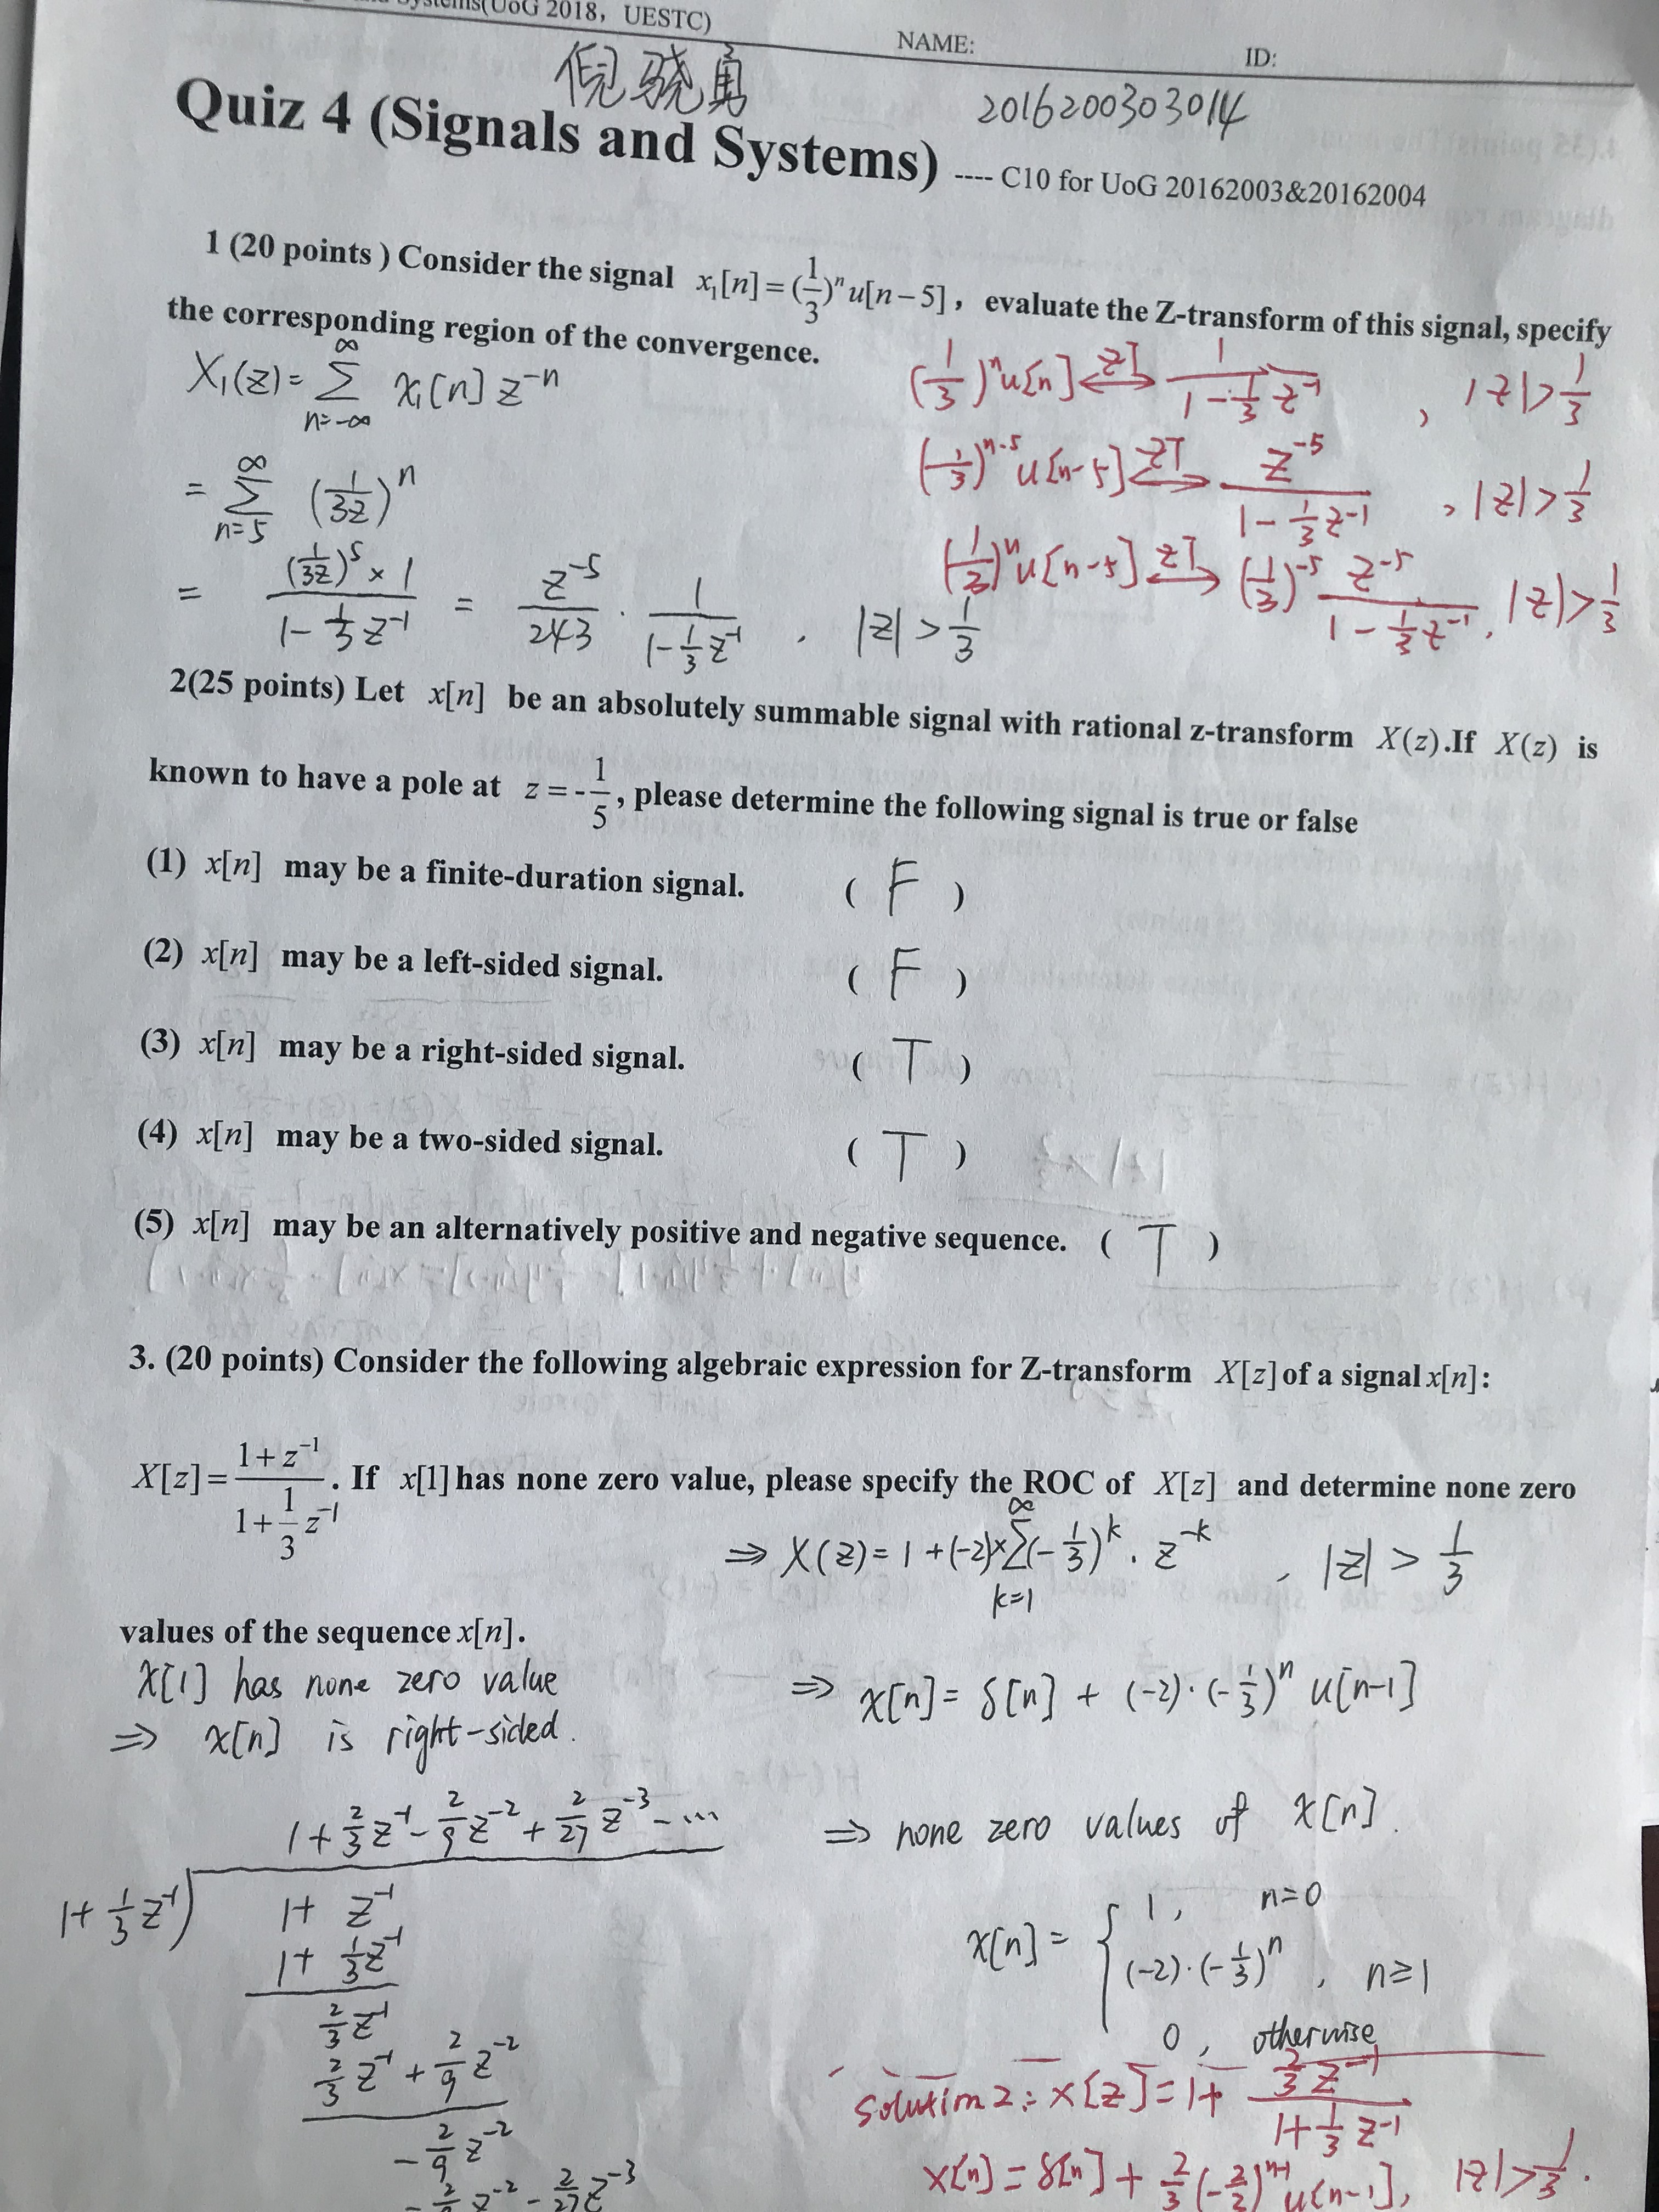 Systems(UoG 2018, UESTC)
NAME: ID:
倪骁勇 2016200303014
Quiz 4 (Signals and Systems) ---- C10 for UoG 20162003&20162004
1 (20 points ) Consider the signal x₁[n]=(1/3)ⁿu[n−5], evaluate the Z-transform of this signal, specify
the corresponding region of the convergence.
X₁(z)= ∑_{n=-∞}^{∞} x₁[n] z⁻ⁿ
= ∑_{n=5}^{∞} (1/3z)ⁿ
= ((1/3z)⁵ × 1)/(1-1/3 z⁻¹) = z⁻⁵/243 · 1/(1-1/3 z⁻¹) , |z|>1/3
(1/3)ⁿu[n] ⟷ZT 1/(1-1/3 z⁻¹) , |z|>1/3
(1/3)ⁿ⁻⁵ u[n-5] ⟷ZT z⁻⁵/(1-1/3 z⁻¹) , |z|>1/3
(1/3)ⁿu[n-5] ⟷ZT (1/3)⁻⁵ z⁻⁵/(1-1/3 z⁻¹), |z|>1/3
2(25 points) Let x[n] be an absolutely summable signal with rational z-transform X(z).If X(z) is
known to have a pole at z=-1/5, please determine the following signal is true or false
(1) x[n] may be a finite-duration signal. ( F )
(2) x[n] may be a left-sided signal. ( F )
(3) x[n] may be a right-sided signal. ( T )
(4) x[n] may be a two-sided signal. ( T )
(5) x[n] may be an alternatively positive and negative sequence. ( T )
3. (20 points) Consider the following algebraic expression for Z-transform X[z] of a signal x[n]:
X[z]=(1+z⁻¹)/(1+1/3 z⁻¹). If x[1] has none zero value, please specify the ROC of X[z] and determine none zero
values of the sequence x[n].
x[1] has none zero value
⇒ x[n] is right-sided.
1+2/3 z⁻¹-2/9 z⁻²+2/27 z⁻³-⋯
1+1/3 z⁻¹ ) 1+ z⁻¹
1+ 1/3 z⁻¹
2/3 z⁻¹
2/3 z⁻¹+2/9 z⁻²
-2/9 z⁻²
-2/9 z⁻²-2/27 z⁻³
⇒ X(z)= 1+(-2)×∑_{k=1}^{∞}(-1/3)ᵏ · z⁻ᵏ , |z| > 1/3
⇒ x[n]= δ[n] + (-2)·(-1/3)ⁿ u[n-1]
⇒ none zero values of x[n].
x[n]= { 1, n=0
(-2)·(-1/3)ⁿ , n≥1
0, otherwise
solution 2: X[z]=1+ (2/3 z⁻¹)/(1+1/3 z⁻¹)
x[n]=δ[n]+ 2/3 (-2/2)ⁿ⁻¹ u[n-1], |z|>1/3.